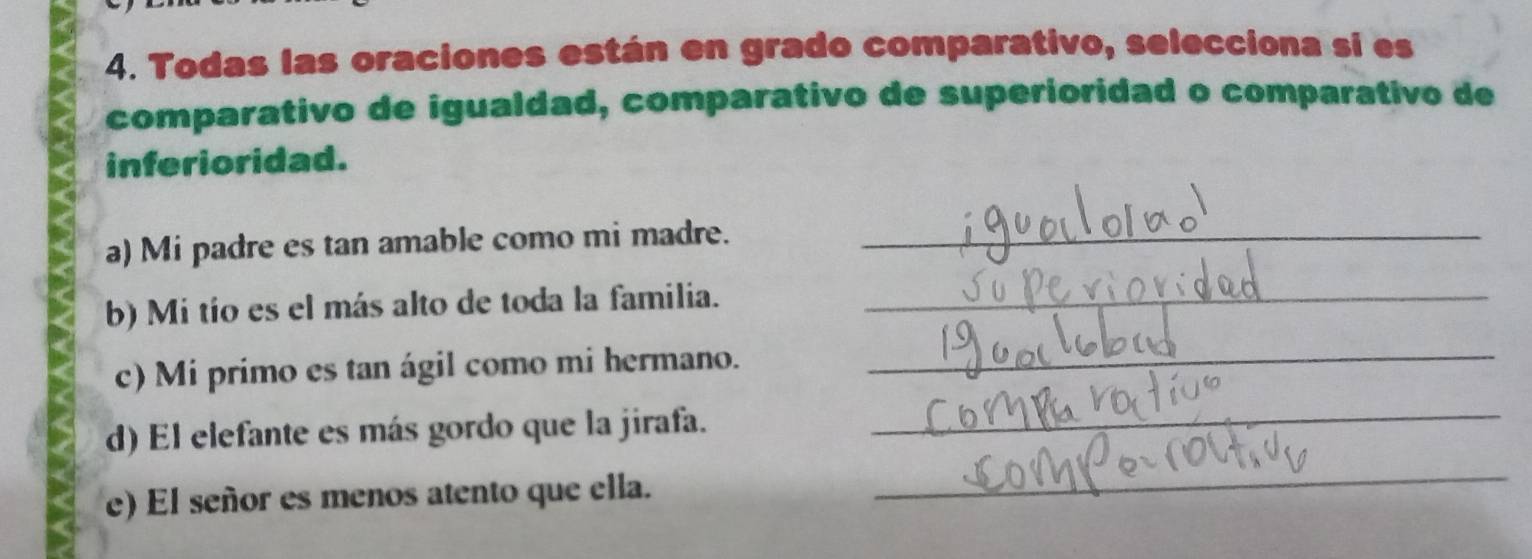 4. Todas las oraciones están en grado comparativo, selecciona si es
comparativo de igualdad, comparativo de superioridad o comparativo de
inferioridad.
a) Mi padre es tan amable como mi madre. igualdad
b) Mi tío es el más alto de toda la familia. superioridad
c) Mi primo es tan ágil como mi hermano. igualdad
d) El elefante es más gordo que la jirafa. comparativo
e) El señor es menos atento que ella. comparativo